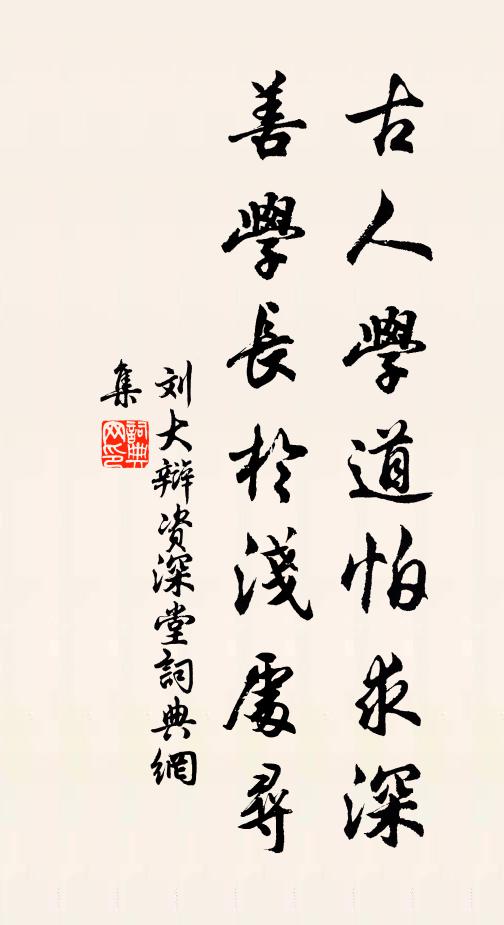 古人學道怕求深
善學長於淺處尋
刘大辯资深堂詞典網
集
詞典网印